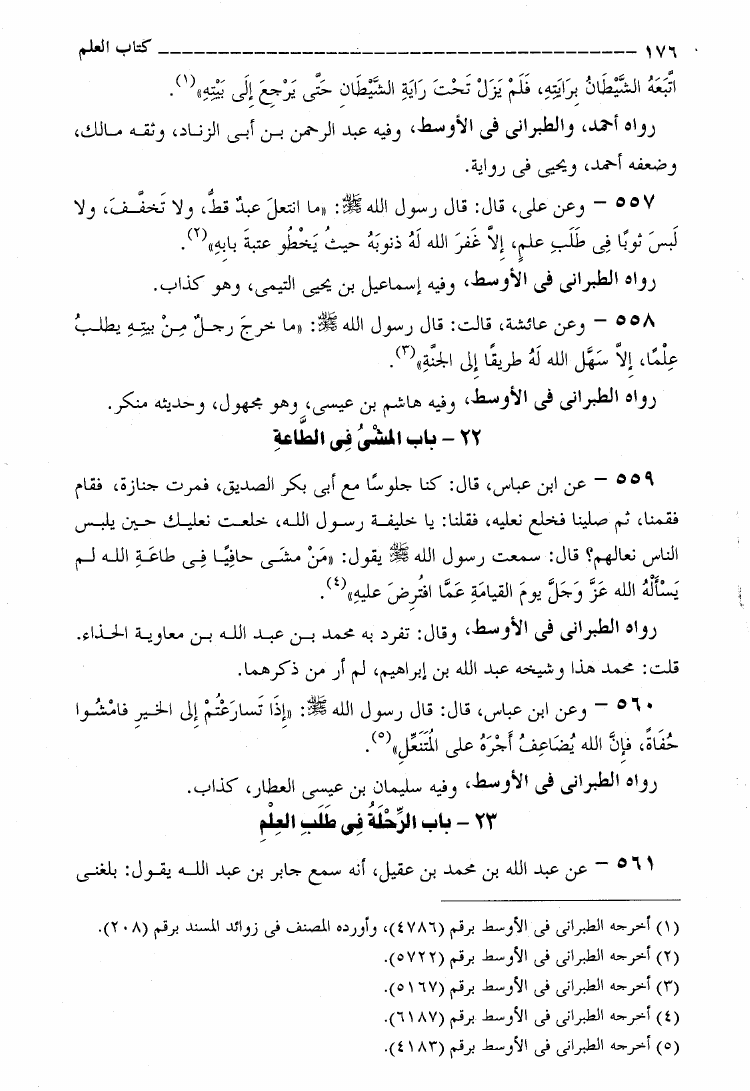 ١٧٦ ــــــــــــــــــــــــــــــــــــــــــــــــ كتاب العلم
اتَّبَعَهُ الشَّيْطَانُ بِرَايَتِهِ، فَلَمْ يَزَلْ تَحْتَ رَايَةِ الشَّيْطَانِ حَتَّى يَرْجِعَ إِلَى بَيْتِهِ»(١).
رواه أحمد، والطبرانى فى الأوسط، وفيه عبد الرحمن بـن أبـى الزنـاد، وثقـه مـالك،
وضعفه أحمد، ويحيى فى رواية.
٥٥٧ – وعن على، قال: قال رسول الله ﷺ: «ما انتعلَ عبدٌ قطُّ، ولا تَخفَّـفَ، ولا
لَبسَ ثوبًا فِى طَلَبِ علمٍ، إلاَّ غَفرَ الله لَهُ ذنوبَهُ حيثُ يَخْطُو عتبةَ بابِهِ»(٢).
رواه الطبرانى فى الأوسط، وفيه إسماعيل بن يحيى التيمى، وهو كذاب.
٥٥٨ – وعن عائشة، قالت: قال رسول الله ﷺ: «ما خرجَ رجـلٌ مِـنْ بيتِـهِ يطلـبُ
عِلْمًا، إلاَّ سَهَّل الله لَهُ طريقًا إلى الجنَّةِ»(٣).
رواه الطبرانى فى الأوسط، وفيه هاشم بن عيسى، وهو مجهول، وحديثه منكر.
٢٢ – باب المَشْىُ فِى الطَّاعةِ
٥٥٩ – عن ابن عباس، قال: كنا جلوسًا مع أبى بكر الصديق، فمرت جنازة، فقام
فقمنا، ثم صلينا فخلع نعليه، فقلنا: يا خليفة رسـول اللـه، خلعت نعليـك حـين يلبـس
الناس نعالهم؟ قال: سمعت رسول الله ﷺ يقول: «مَنْ مشَـى حافِيًـا فِـى طاعَـةِ اللـه لـم
يَسْأَلْهُ الله عَزَّ وَجَلَّ يومَ القيامَةِ عَمَّا افتُرِضَ عليهِ»(٤).
رواه الطبرانى فى الأوسط، وقال: تفرد به محمد بـن عبـد اللـه بـن معاوية الحـذاء.
قلت: محمد هذا وشيخه عبد الله بن إبراهيم، لم أر من ذكرهما.
٥٦٠ – وعن ابن عباس، قال: قال رسول الله ﷺ: «إِذَا تَسارَعْتُمْ إلى الخيرِ فامْشُـوا
حُفَاةً، فإنَّ الله يُضَاعِفُ أَجْرَهُ على المُتَنَعِّلِ»(٥).
رواه الطبرانى فى الأوسط، وفيه سليمان بن عيسى العطار، كذاب.
٢٣ – باب الرِّحْلَةُ فِى طَلَبِ العِلْمِ
٥٦١ – عن عبد الله بن محمد بن عقيل، أنه سمع جابر بن عبد اللـه يقـول: بلغنى
(١) أخرجه الطبرانى فى الأوسط برقم (٤٧٨٦)، وأورده المصنف فى زوائد المسند برقم (٢٠٨).
(٢) أخرجه الطبرانى فى الأوسط برقم (٥٧٢٢).
(٣) أخرجه الطبرانى فى الأوسط برقم (٥١٦٧).
(٤) أخرجه الطبرانى فى الأوسط برقم (٦١٨٧).
(٥) أخرجه الطبرانى فى الأوسط برقم (٤١٨٣).